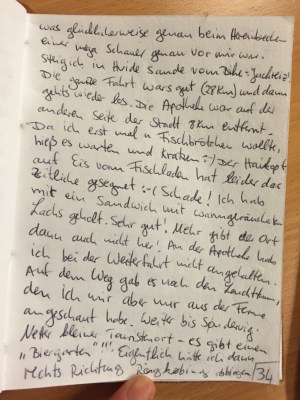 was glücklicherweise genau beim
einer mega Schauer genau vor mir war.
Steig ich in Hvide Sande vom Bike = Juckreiz!
Die ganze Fahrt war's gut (28km) und dann
geht's wieder los. Die Apotheke war auf der
anderen Seite der Stadt 8km entfernt.
Da ich erst mal n Fischbrötchen wollte,
hieß es warten und kratzen :-) Der
auf Eis vom Fischladen hat leider das
Zeitliche gesegnet :-( Schade! Ich hab
mit ein Sandwich mit warmgeräucherten
Lachs geholt. Sehr gut! Mehr gibt der Ort
dann auch nicht her! An der Apotheke hab
ich bei der Weiterfahrt nicht angehalten.
Auf dem Weg gab es noch den Leuchtturm,
den ich mir aber nur aus der Ferne
angeschaut habe. Weiter bis Søndervig.
Netter kleiner Touristenort - es gibt einen
"Biergarten"!!! Eigentlich hätte ich dann
rechts Richtung Ringkøbing abbiegen /34